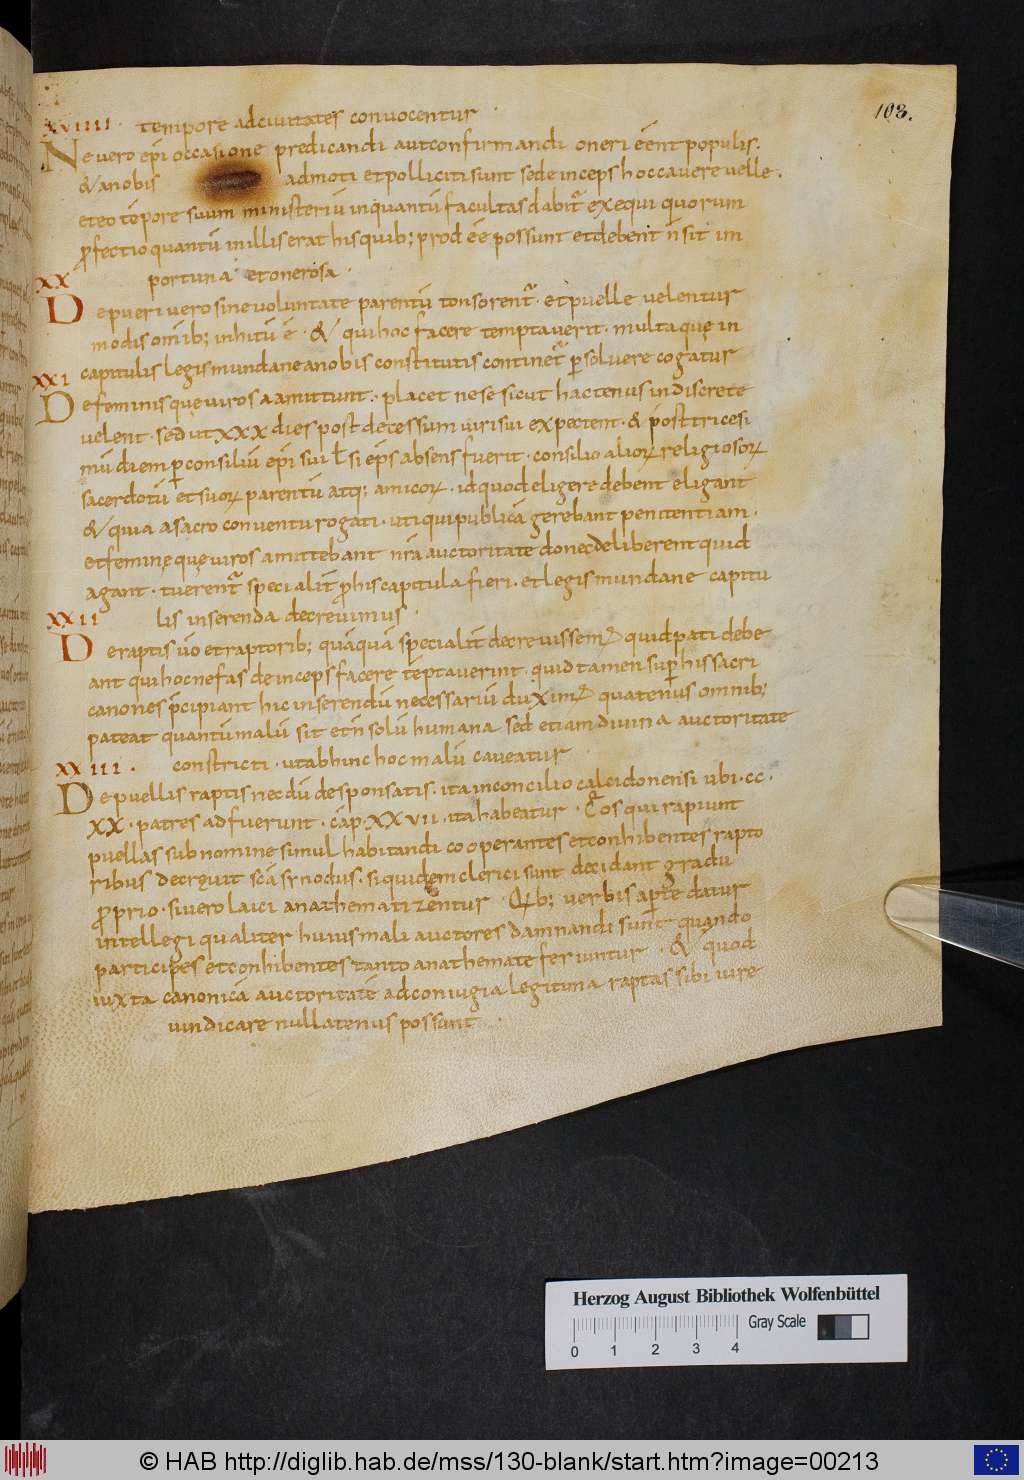 103.
XVIIII. tempore adciuitates conuocentur
Ne uero epi occasione predicandi aut confirmandi oneri eent populis.
& anobis admoti et polliciti sunt se deinceps hoc cauere uelle.
et eo tēpore suum ministeriū inquantū facultas dabit exequi quorum
profectio quantū in illis erat his quib; prod eē possunt et debent n̄ sit im
portuna et onerosa.
XX
De pueri uero sine uoluntate parentū tonsorent. et puelle uelentur
modis omib; inhitū ē. & qui hoc facere temptauerit. multa que in
capitulis legis mundane anobis constitutis continet persoluere cogatur
XXI
De feminis que uiros amittunt. placet ne se sicut hactenus indiscrete
uelent. sed ut XXX dies post decessum uiri sui expectent. & post tricesi
mū diem per consiliū epi sui ł si eps absens fuerit. consilio alioꝝ religiosoꝝ
sacerdotū et suoꝝ parentū atq; amicoꝝ. id quod eligere debent eligant
& quia a sacro conuentu rogati. uti qui publicā gerebant penitentiam.
et feminę que uiros amittebant nr̄a auctoritate donec deliberent quid
agant. tuerent specialit pro his capitula fieri. et legis mundane capitu
lis inserenda decreuimus.
XXII
De raptis uō et raptorib; quāquā specialit decreuissem quid pati debe
ant qui hoc nefas deinceps facere tēptauerint. quid tamen super his sacri
canones p̄cipiant hic inserendū necessariū duxim quatenus omnib;
pateat quantū malū sit et n̄ solū humana sed etiam diuina auctoritate
constricti. ut abhinc hoc malū caueatur
XXIII.
De puellis raptis necdū desponsatis. ita inconcilio calcidonensi ubi. cc.
XX. patres adfuerunt. cap. XXVII. ita habeatur. Eos qui rapiunt
puellas sub nomine simul habitandi cooperantes et conhibentes rapto
ribus decreuit scā synodus. siquidem clerici sunt decidant gradu
proprio. si uero laici anathematizentur. Qib; uerbis aperte datur
intellegi qualiter huius mali auctores damnandi sunt quando
participes et conhibentes tanto anathemate feriuntur. & quod
iuxta canonicā auctoritatē ad coniugia legitima raptas sibi iure
uindicare nullatenus possunt.
Herzog August Bibliothek Wolfenbüttel
Gray Scale
0 1 2 3 4
© HAB http://diglib.hab.de/mss/130-blank/start.htm?image=00213